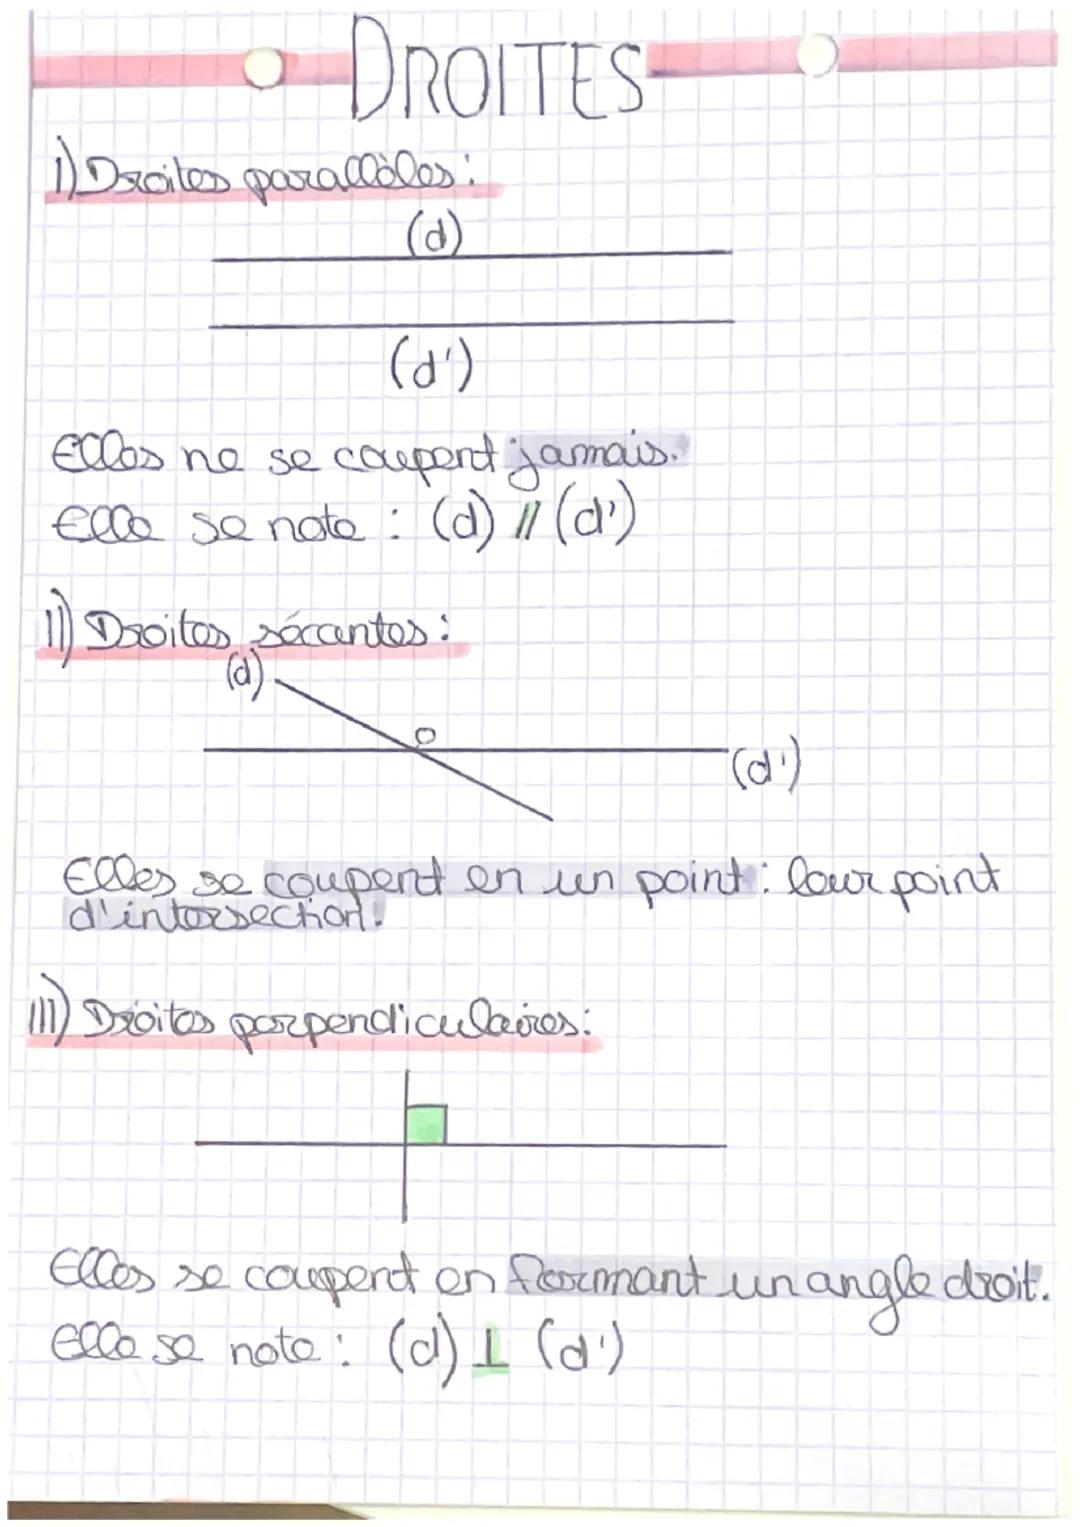 DROITES
I) Droites parallèles :
(d)
(d')
Elles ne se coupent jamais.
Elle se note : (d) // (d')
II) Droites sécantes :
(d)
O
(d')
Elles se coupent en un point : leur point
d'intersection.
III) Droites perpendiculaires :
Elles se coupent en formant un angle droit.
Elle se note : (d) ⊥ (d')